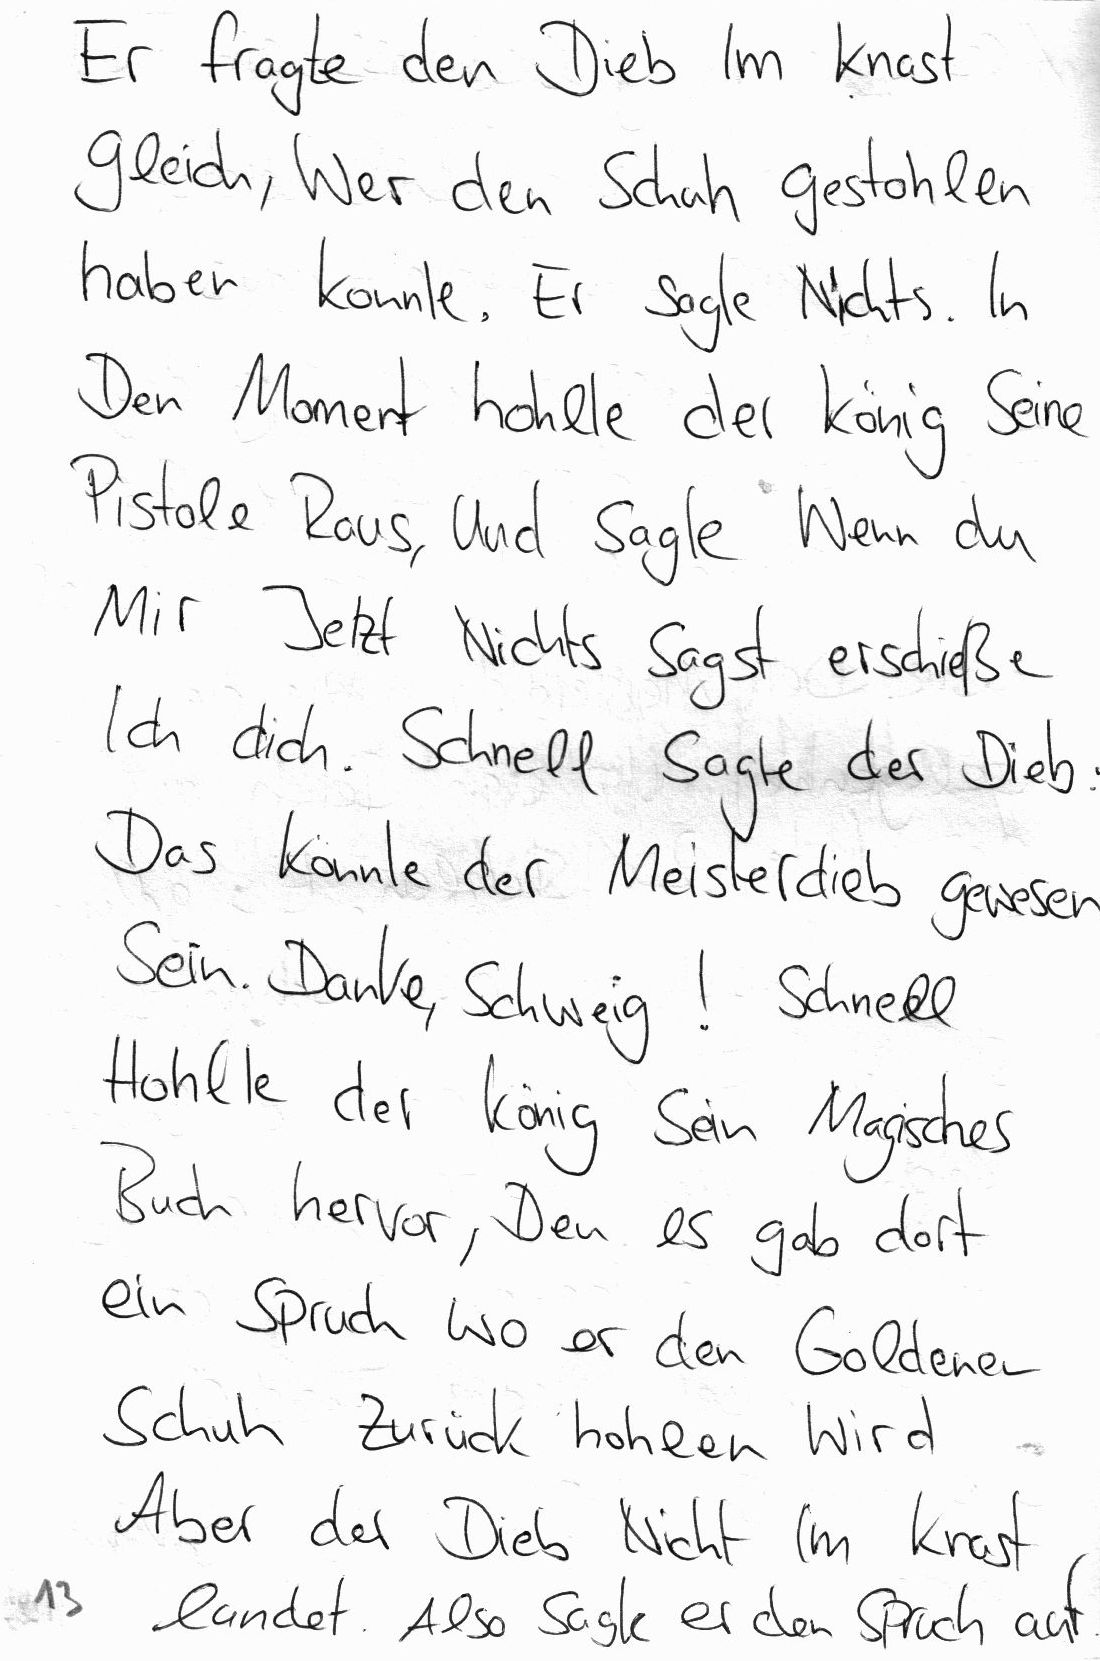 Er fragte den Dieb Im Knast
gleich, Wer den Schuh gestohlen
haben konnte. Er sagte Nichts. In
Den Moment hohlte der könig Seine
Pistole Raus, Und Sagte Wenn du
Mir Jetzt Nichts Sagst erschieße
Ich dich. Schnell Sagte der Dieb:
Das könnte der Meisterdieb gewesen
Sein. Danke, Schweig! Schnell
Hohlte der könig Sein Magisches
Buch hervor, Den es gab dort
ein Spruch wo er den Goldenen
Schuh Zurück hohlen Wird
Aber der Dieb Nicht Im Knast
landet. Also Sagte er den Spruch auf.
13